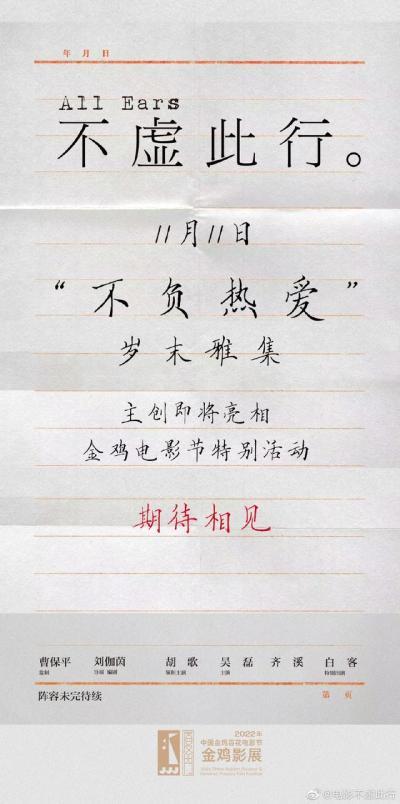 年 月 日
All Ears
不虚此行。
11月11日
“不负热爱”
岁末雅集
主创即将亮相
金鸡电影节特别活动
期待相见
曹保平 刘伽茵 胡歌 吴磊 齐溪 白客
监制 导演 编剧 领衔主演 主演 特别出演
阵容未完待续
第 页
2022年
中国金鸡百花电影节
金鸡影展
@电影不虚此行